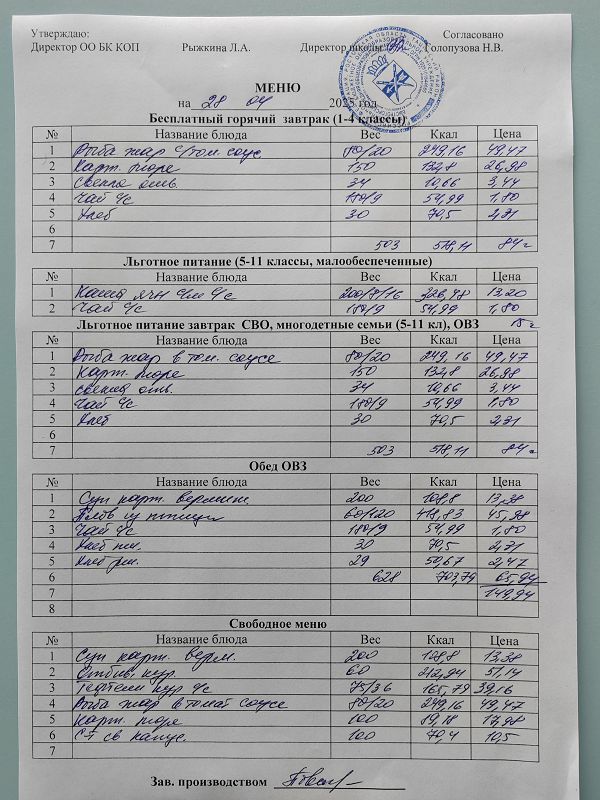 Утверждаю: Согласовано
Директор ОО БК КОП Рыжкина Л.А. Директор школы Голопузова Н.В.
МЕНЮ
на 28 04 2025 год
Бесплатный горячий завтрак (1-4 классы)
№ Название блюда Вес Ккал Цена
1 Рыба жар с/том. соус 80/20 249,16 49,47
2 Карт. пюре 150 132,8 26,98
3 Свекла отв. 34 10,66 3,44
4 Чай с/с 180/9 54,99 1,80
5 Хлеб 30 70,5 2,31
6
7 503 518,11 84=
Льготное питание (5-11 классы, малообеспеченные)
№ Название блюда Вес Ккал Цена
1 Каша ячн с/м с/с 200/7/16 326,48 13,20
2 Чай с/с 180/9 54,99 1,80
Льготное питание завтрак СВО, многодетные семьи (5-11 кл), ОВЗ 15=
№ Название блюда Вес Ккал Цена
1 Рыба жар в том. соусе 80/20 249,16 49,47
2 Карт. пюре 150 132,8 26,98
3 свекла отв. 34 10,66 3,44
4 Чай с/с 180/9 54,99 1,80
5 Хлеб 30 70,5 2,31
6
7 503 518,11 84=
Обед ОВЗ
№ Название блюда Вес Ккал Цена
1 Суп карт. вермиш. 200 108,8 13,38
2 Плов из птицы 60/120 418,83 45,98
3 Чай с/с 180/9 54,99 1,80
4 Хлеб пш. 30 70,5 2,31
5 Хлеб рж. 29 50,67 2,47
6 628 703,79 65,94
7 149,94
8
Свободное меню
№ Название блюда Вес Ккал Цена
1 Суп карт. верм. 200 108,8 13,38
2 Отбив. кур. 60 212,94 51,14
3 Тефтели кур с/с 75/36 165,79 39,16
4 Рыба жар в томат соусе 80/20 249,16 49,47
5 Карт. пюре 100 89,18 17,98
6 С-т св капус. 100 70,4 10,5
7
Зав. производством